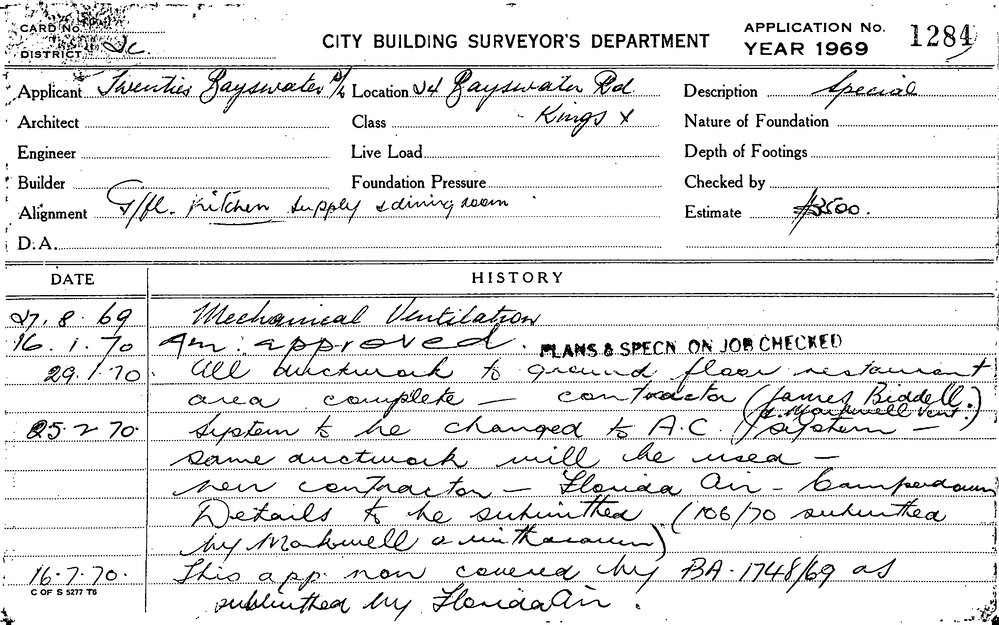 CARD No.
DISTRICT 2c.
CITY BUILDING SURVEYOR'S DEPARTMENT
APPLICATION No. 1284
YEAR 1969
Applicant Twenties Bayswater P/L Location 24 Bayswater Rd Description Special
Architect Class Kings X Nature of Foundation
Engineer Live Load Depth of Footings
Builder Foundation Pressure Checked by
Alignment G/fl. Kitchen supply & dining room Estimate $3500.
D.A.
DATE HISTORY
27. 8. 69 Mechanical Ventilation
16. 1. 70 Am. approved. PLANS & SPECN ON JOB CHECKED
29.1.70. All ductwork to ground floor restaurant
area complete — contractor (James Biddell.)
(& Markwell Vent.)
25.2.70. System to be changed to A.C. system —
same ductwork will be used —
new contractor — Florida Air - Camperdown
Details to be submitted (106/70 submitted
by Markwell & withdrawn)
16.7.70. This app. now covered by BA. 1748/69 as
C OF S 5277 T6
submitted by Florida Air.